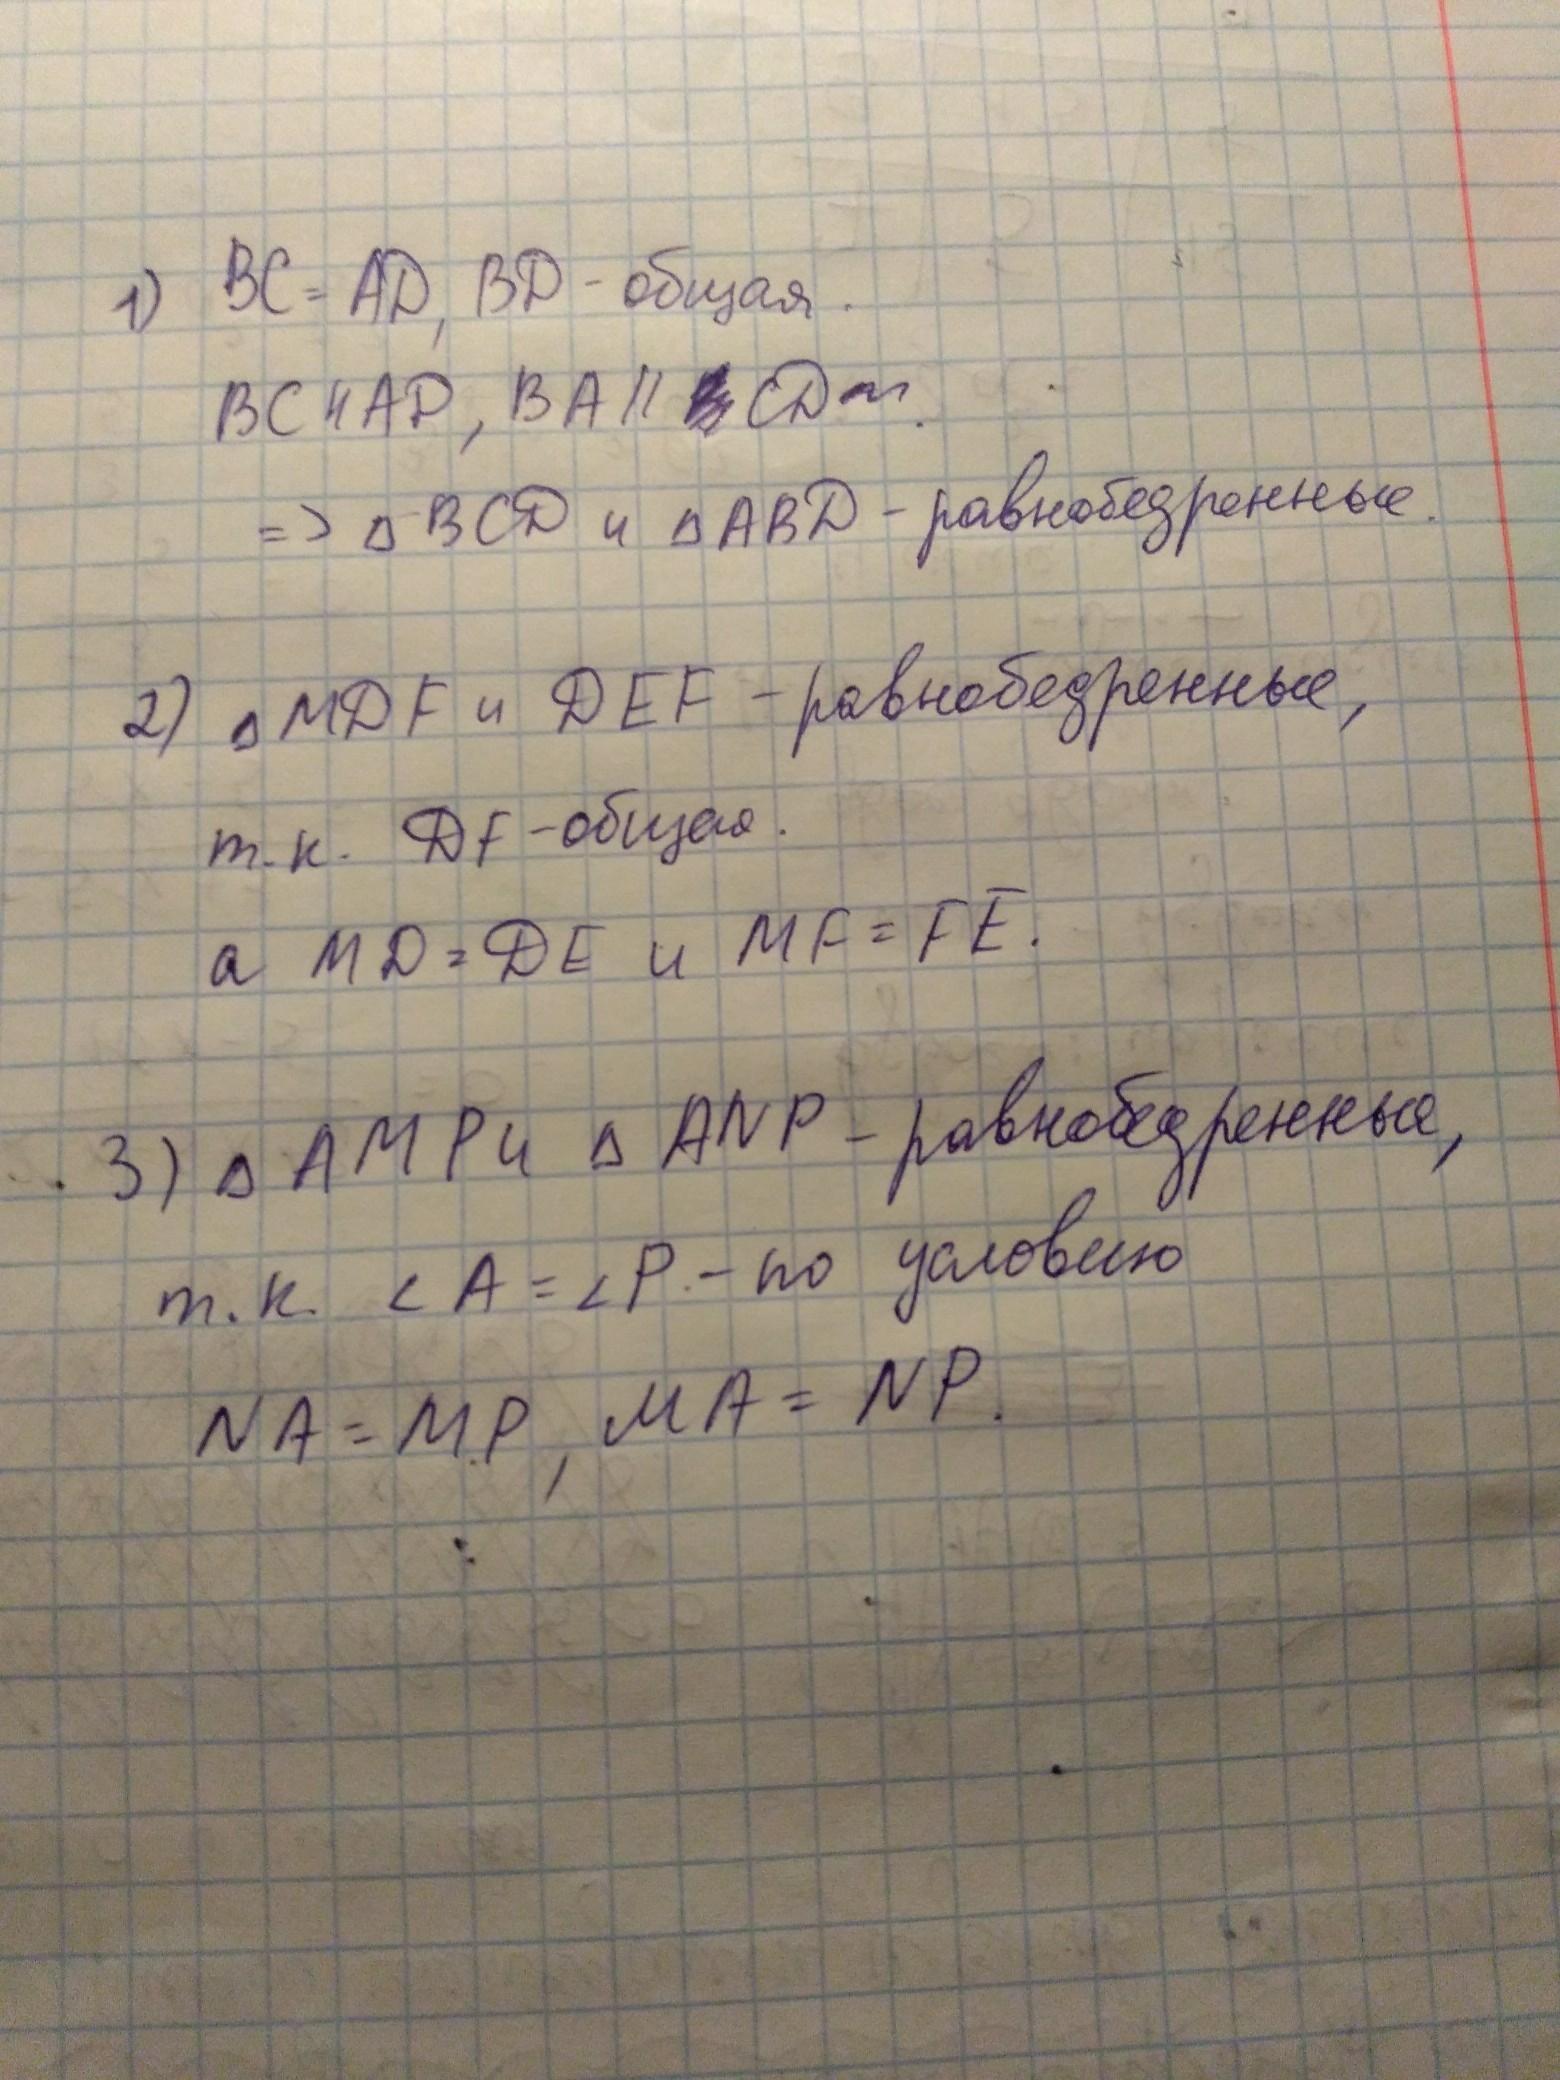 1) BC = AD, BD - общая.
BC || AD, BA || CD
=> △ BCD и △ ABD - равнобедренные.
2) △ MDF и DEF - равнобедренные,
т.к. DF - общая.
а MD = DE и MF = FE.
3) △ AMP и △ ANP - равнобедренные,
т.к. < A = < P. - по условию
NA = MP, MA = NP.